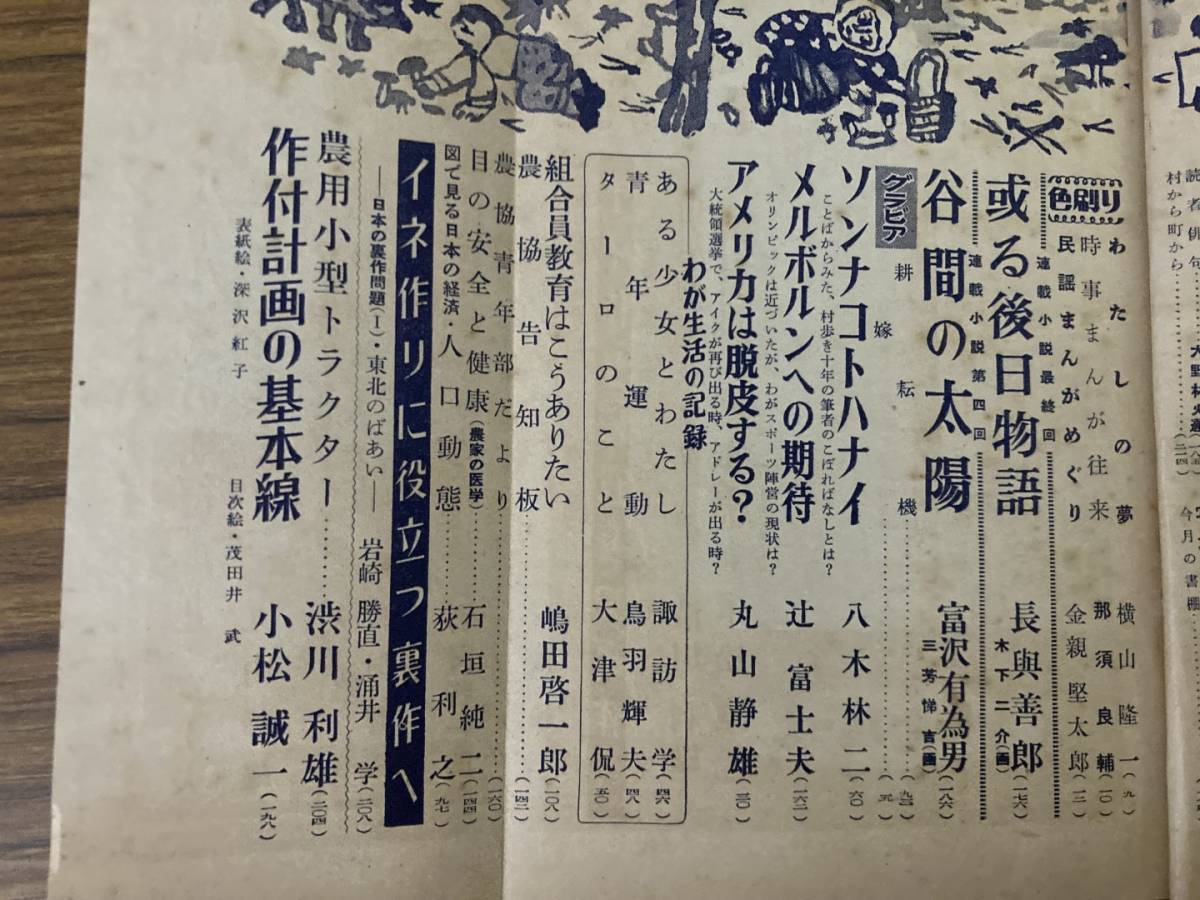 読者俳句
村から町から
大野村
(二四)
今月の書棚
色刷り
わたしの夢 横山隆一(九)
時事まんが往来 那須良輔(一〇)
民謡まんがめぐり 金親堅太郎(一二)
連載小説最終回
或る後日物語 長與善郎(一七六)
木下二介(画)
連載小説第四回
谷間の太陽 富沢有為男(一八六)
三芳悌吉(画)
グラビア
耕耘機
嫁
ソンナコトハナイ 八木林二(六〇)
ことばからみた、村歩き十年の筆者のこぼればなしとは?
メルボルンへの期待 辻富士夫(一六二)
オリンピックは近づいたが、わがスポーツ陣営の現状は?
アメリカは脱皮する? 丸山静雄(三〇)
大統領選挙で、アイクが再び出る時、アドレーが出る時?
わが生活の記録
ある少女とわたし 諏訪学(四六)
青年運動 鳥羽輝夫(四八)
ターロのこと 大津侃(五〇)
組合員教育はこうありたい 嶋田啓一郎(一〇八)
農協告知板……(一四二)
農協青年部だより……(一六〇)
目の安全と健康(農家の医学)……石垣純二(一四四)
図で見る日本の経済・人口動態……荻利之(九七)
イネ作りに役立つ裏作へ
―日本の裏作問題(1)・東北のばあい― 岩崎勝直・涌井学(二〇八)
農用小型トラクター……渋川利雄(二〇四)
作付計画の基本線 小松誠一(一九八)
表紙絵・深沢紅子
目次絵・茂田井武